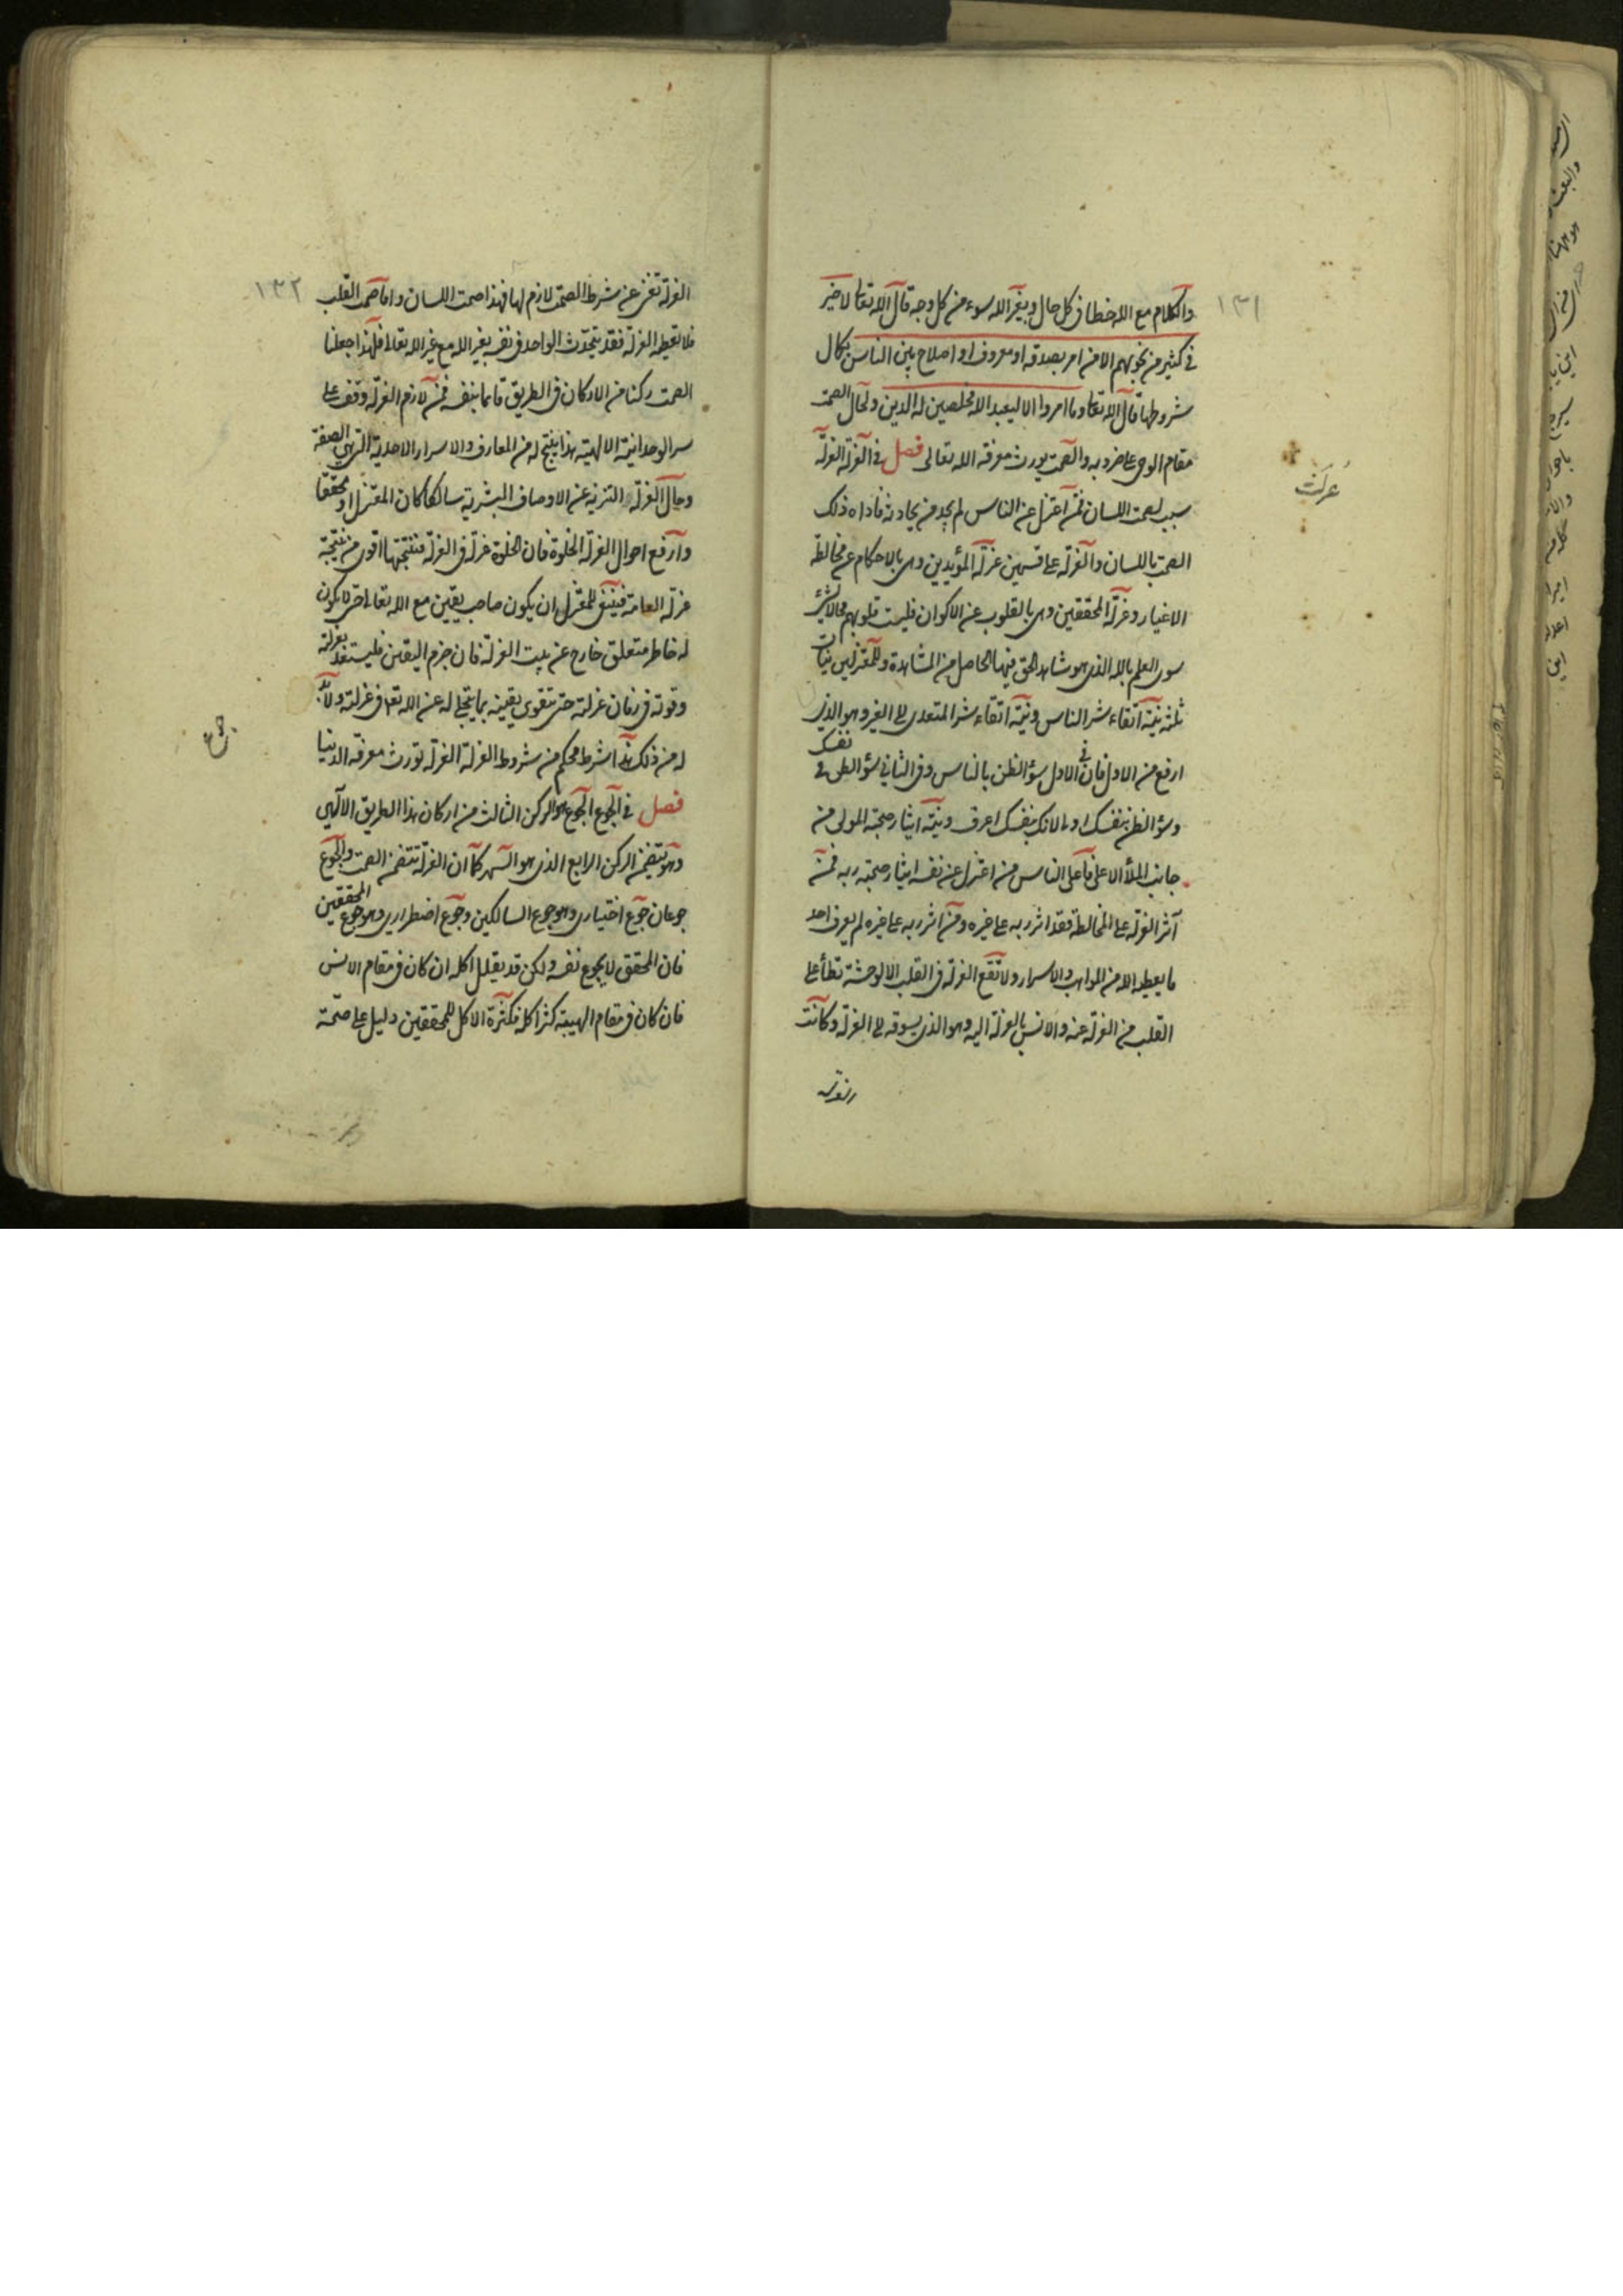 ١٣١
والكلام مع الله خطا في كل حال وبغير الله سوء من كل وجه قال الله تعالى لا خير
في كثير من نجويهم الا من امر بصدقة او معروف او اصلاح بين الناس بكمال
شروطها قال الله تعالى وما امروا الا ليعبد الله مخلصين له الدين ولحال الصمت
مقام الوحى على ضروبه والصمت يورث معرفة الله تعالى فصل في العزلة العزلة
سبب لصمت اللسان فمن اعتزل عن الناس لم يجد من يحادثه فاداه ذلك
الصمت باللسان والعزلة على قسمين عزلة المؤيدين وهى بالاحكام عن مخالطة
الاغيار وعزلة المحققين وهى بالقلوب عن الاكوان فليست قلوبهم محالا لشئ
سوى العلم بالله الذى هو شاهد الحق فيها الحاصل من المشاهدة وللمعتزلين نيات
ثلثة نية اتقاء شر الناس ونية اتقاء شر المتعدى الى الغير وهو الذى
ارفع من الاول فان في الاول سؤ الظن بالناس وفى الثانى سؤ الظن في نفسك
وسؤ الظن بنفسك اولى لانك بنفسك اعرف ونية ايثار صحبة المولى من
جانب الملأ الاعلى فاعلى الناس من اعتزل عن نفسه ايثار صحبة ربه فمن
آثر العزلة على المخالطة فقد اثر ربه على غيره ومن اثر ربه على غيره لم يعرف احد
ما يعطيه الله من المواهب والاسرار ولا تقع العزلة فى القلب الا لوحشة تطأ على
القلب من العزلة عنه والانس بالعزلة اليه وهو الذى يسوقه الى العزلة وكانت
عزلت
١٣٢
العزلة تغنى عن شرط الصمت لازم لها فهذا صمت اللسان واما صمت القلب
فلا تعطيه العزلة فقد يتحدث الواحد فى نفسه بغير الله مع غير الله تعالى فلهذا جعلنا
الصمت ركنا من الاركان فى الطريق قائما بنفسه فمن لازم العزلة وقف على
سر الوحدانية الالهية بهذا ينتج له من المعارف والاسرار الاحدية التى هى الصفة
وحال العزلة التنزيه عن الاوصاف البشرية سالكا كان المعتزل او محققا
وارفع احوال العزلة الخلوة فان الخلوة عزلة فى العزلة فنتيجتها اقوى من نتيجة
عزلة العامة فينبغى للمعتزل ان يكون صاحب يقين مع الله تعالى حتى لا يكون
له خاطر متعلق خارج عن بيت العزلة فان حرم اليقين فليستعد بعزلة
وقوته فى زمان عزلته حتى تقوى يقينه بما يتجلى له عن الله تع فى عزلته ولا بد
له من ذلك هذا شرط محكم من شروط العزلة العزلة تورث معرفة الدنيا
فصل في الجوع الجوع هو الركن الثالث من اركان هذا الطريق الالهى
وهو يتضمن الركن الرابع الذى هو السهر كما ان العزلة تتضمن الصمت والجوع
جوعان جوع اختيارى وهو جوع السالكين وجوع اضطرارى وهو جوع المحققين
فان المحقق لا يجوع نفسه ولكن قد يقلل اكله ان كان فى مقام الانس
فان كان فى مقام الهيبة كثر اكله فكثرة الاكل للمحققين دليل على صحة